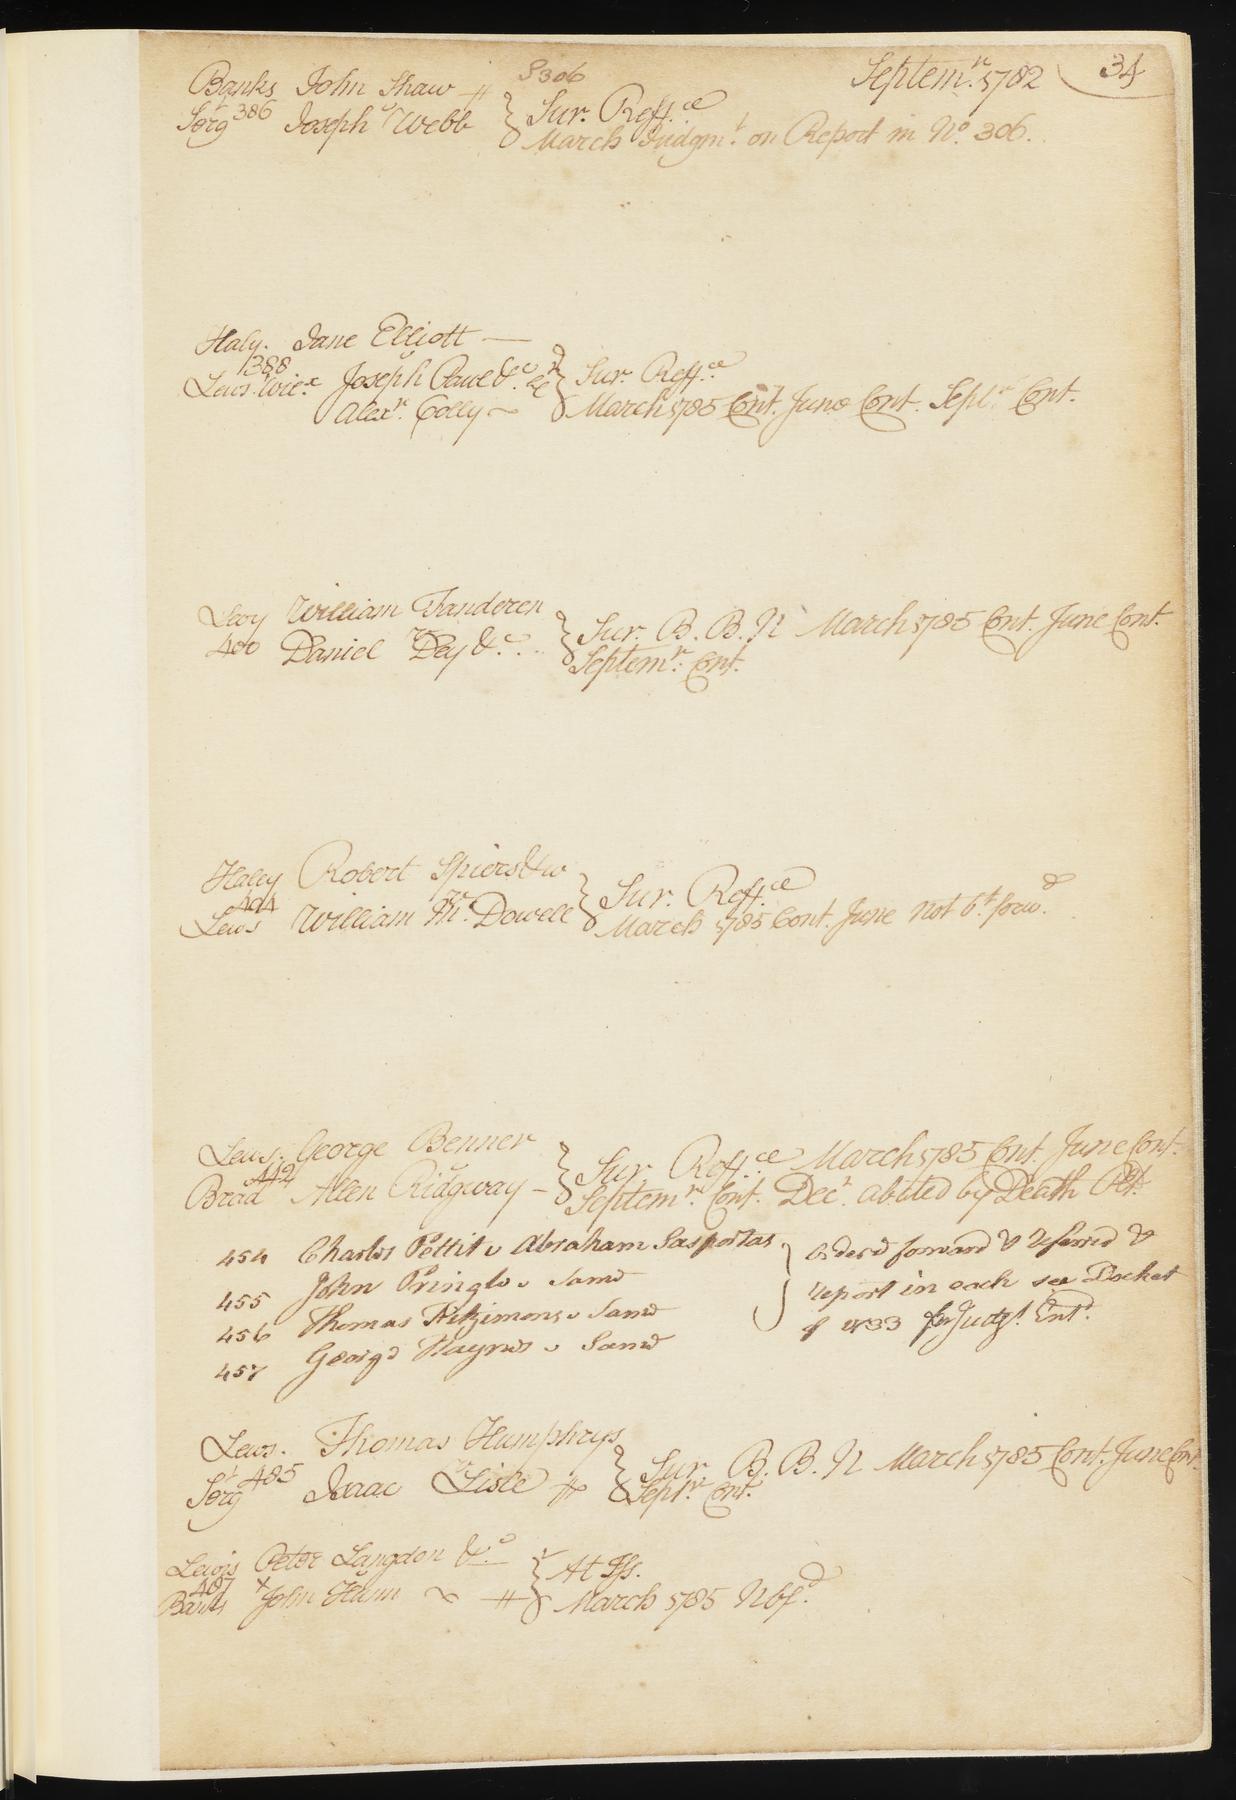 S306
Septem.r 1782
34
Banks John Shaw
Serg.t 386 v
Joseph Webb
Sur. Reff.ce
March Judgm.t on Report in No. 306.
Haly. Jane Elliott
388 v
Lews. Wilc. Joseph Paul &c.
Alex.r Colly
Sur. Reff.ce
March 1785 Cont. June Cont. Sept.r Cont.
Levy William Vanderen
400 v
Daniel Dey &c.
Sur. B. B. N March 1785 Cont. June Cont.
Septem.r Cont.
Haley Robert Spiers & ux
404 vs
Lews William Mc. Dowell
Sur. Reff.ce
March 1785 Cont. June not b.t forw.d
Lews. George Benner
442 v
Brad Allen Ridgway
Sur. Reff.ce March 1785 Cont. June Cont.
Septem.r Cont. Dec.r abated by Death Plt.
454 Charles Pettit v Abraham Sasportas
455 John Pringle v Same
456 Thomas Fitzimons v Same
457 George Haynes v Same
orderd forward & referred &
report in each see Docket
for Judg.t Ent.d
Lews. Thomas Humphrys
Serg.t 485 vs
Isaac Lisle
Sur. B. B. N March 1785 Cont. June Cont.
Sept.r Cont.
Lewis Peter Langdon &c.
487 v
Banks John Ham
At Iss.
March 1785 Nbf.d